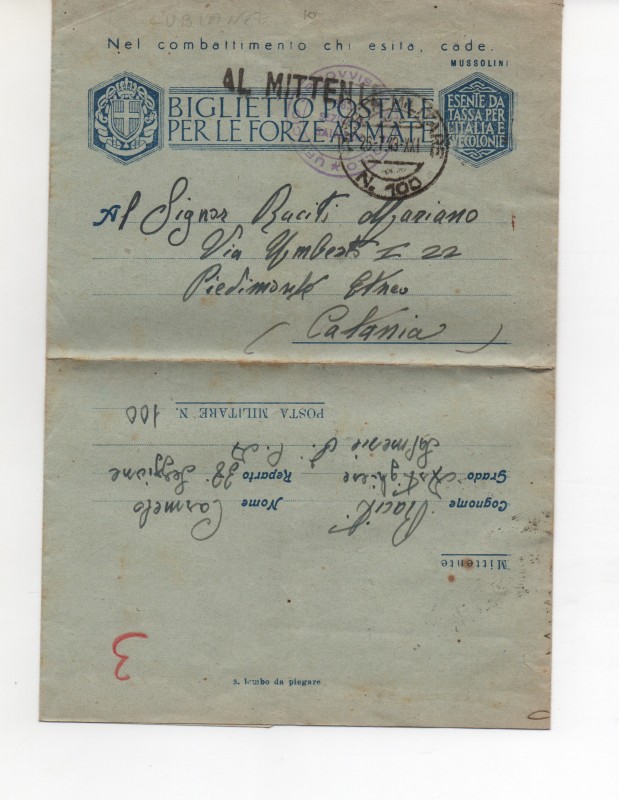 LUBIANA
10
Nel combattimento chi esita, cade.
MUSSOLINI
AL MITTENTE
BIGLIETTO POSTALE
PER LE FORZE ARMATE
ESENTE DA
TASSA PER
L'ITALIA E
SVE COLONIE
N. 100
Al Signor Raciti Mariano
Via Umberto I 22
Piedimonte Etneo
(Catania)
Mittente
Cognome Raciti Nome Carmelo
Grado Artigliere Reparto 38 Sezione
Salmerie
POSTA MILITARE N. 100
3
3. lembo da piegare